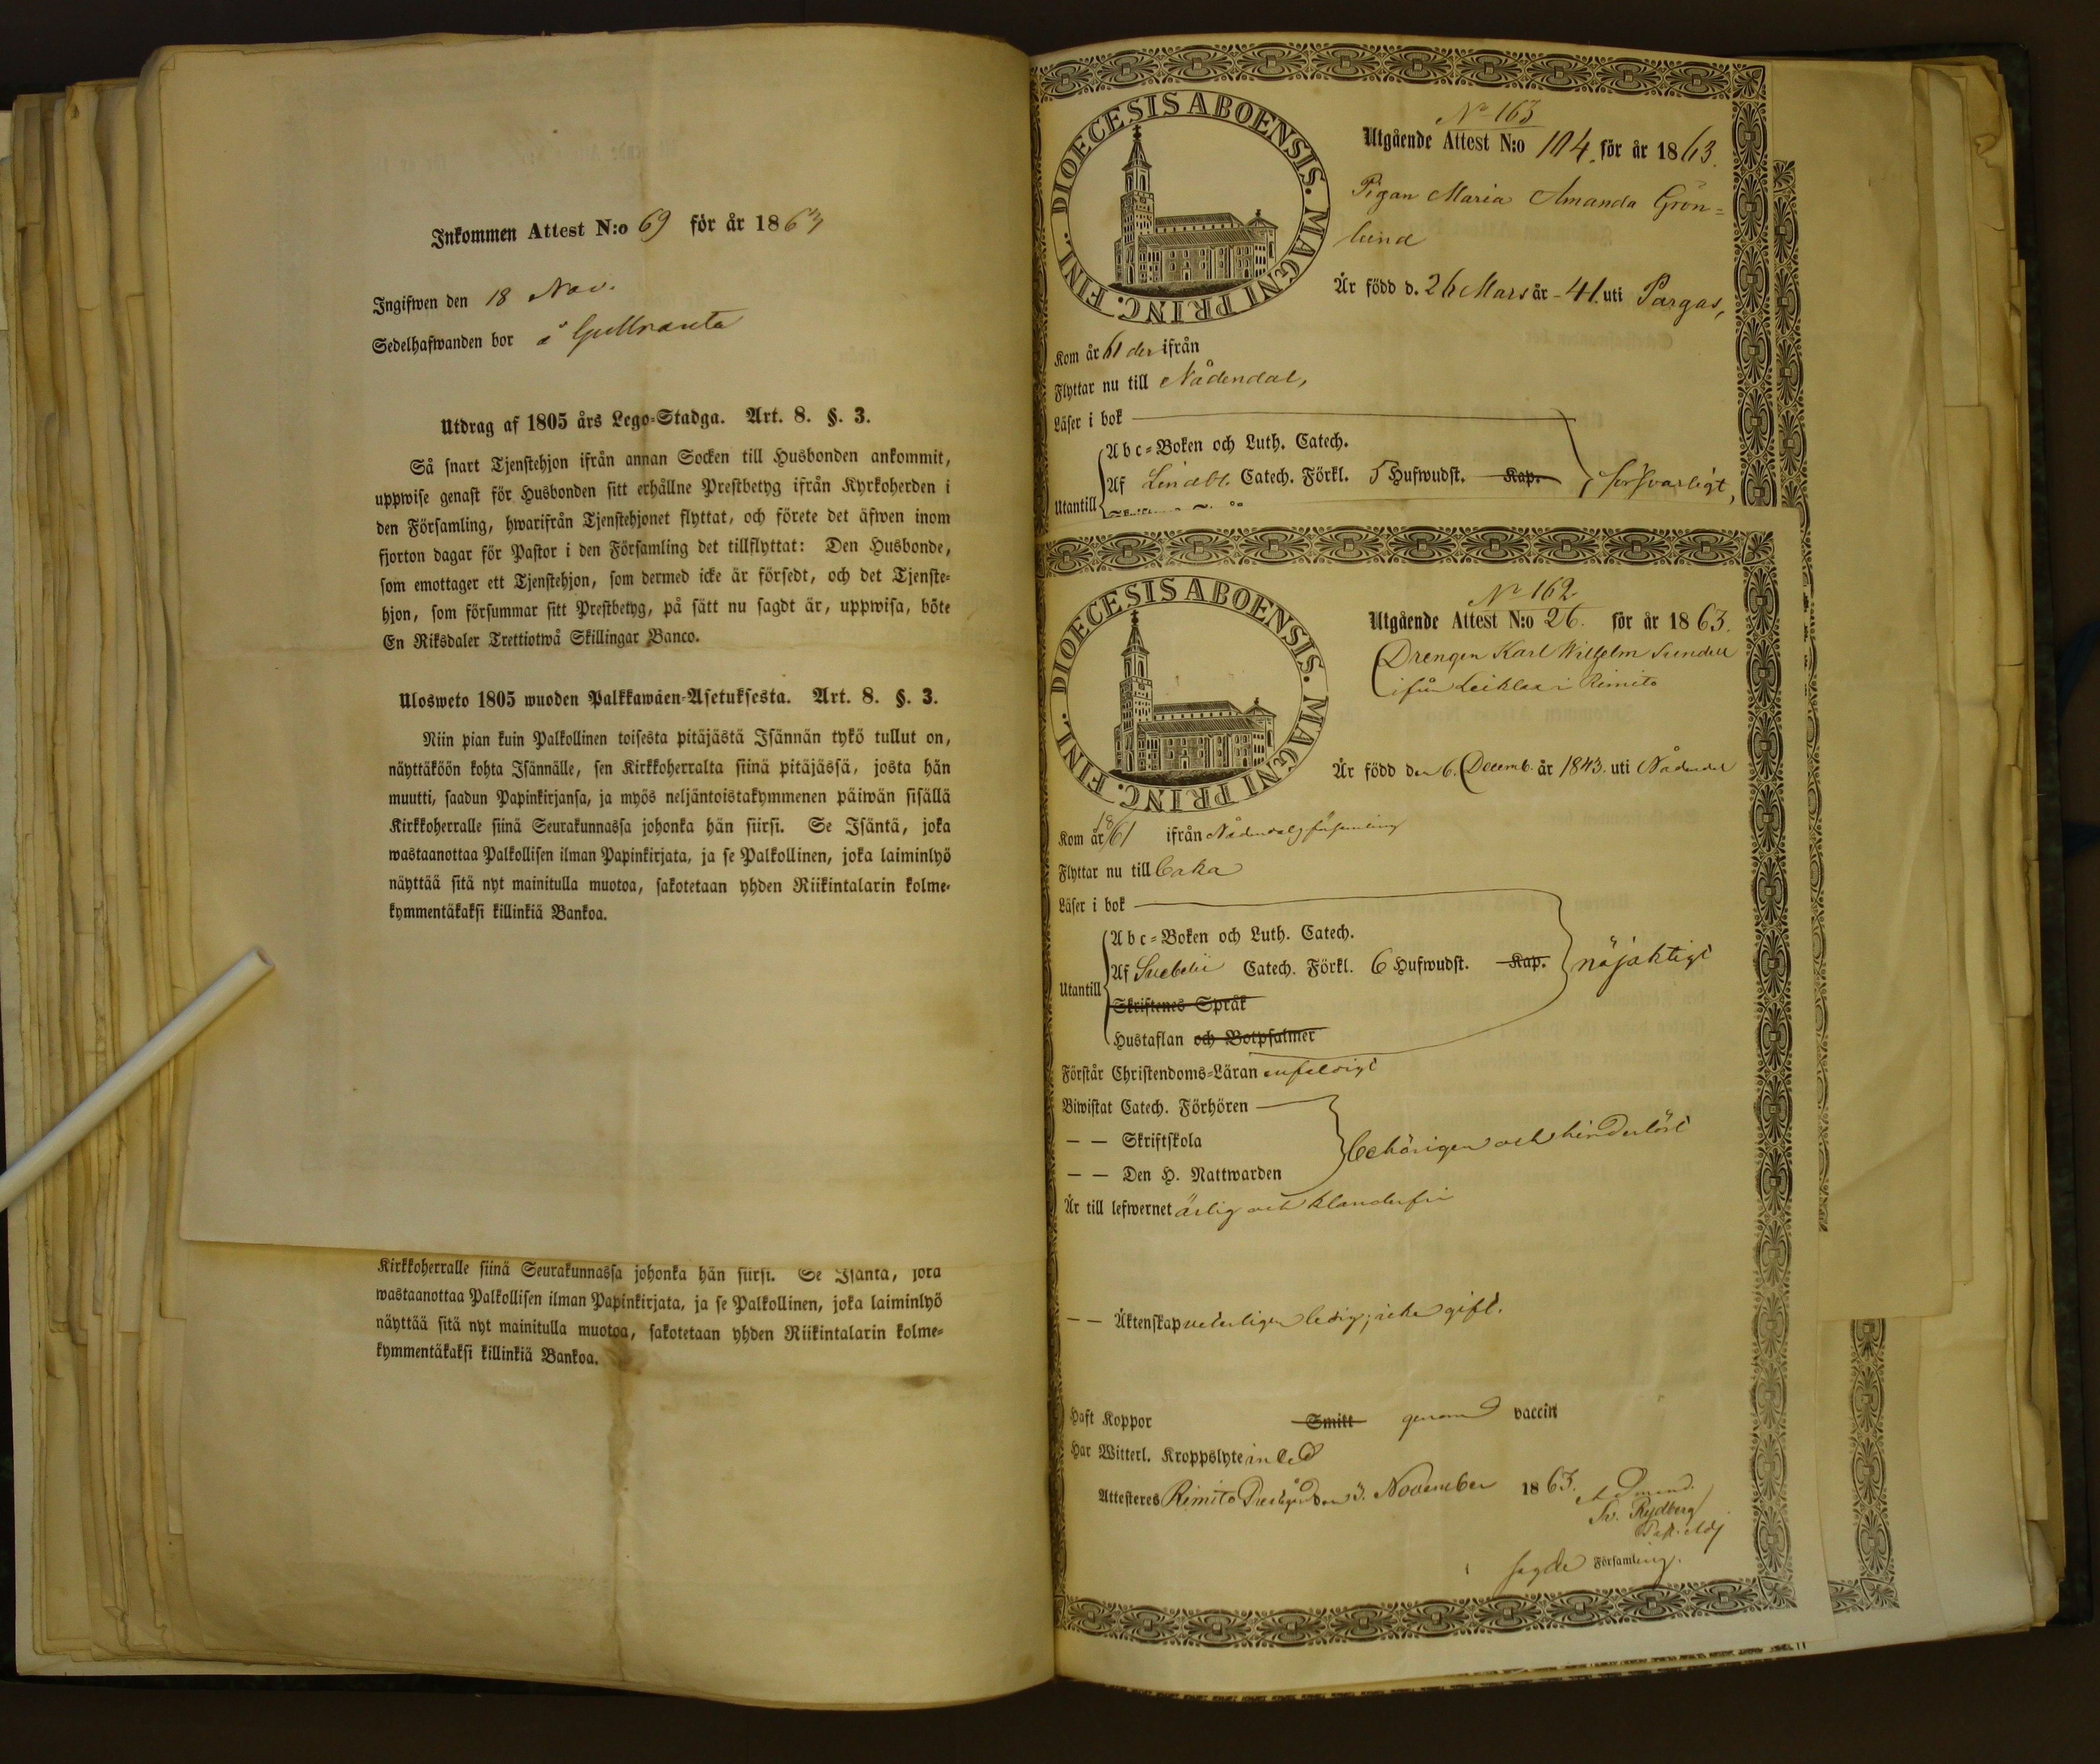 Inkommen Attest N:o 69 för år 1863
Ingifwen den 18 Nov.
Sedelhafwanden bor å Gullranta
Utdrag af 1805 års Lego-Stadga. Art. 8. §. 3.
Så snart Tjenstehjon ifrån annan Socken till Husbonden ankommit,
uppwise genast för Husbonden sitt erhållne Prestbetyg ifrån Kyrkoherden i
den Församling, hwarifrån Tjenstehjonet flyttat, och förete det äfwen inom
fjorton dagar för Pastor i den Församling det tillflyttat: Den Husbonde,
som emottager ett Tjenstehjon, som dermed icke är försedt, och det Tjenste-
hjon, som försummar sitt Prestbetyg, på sätt nu sagdt är, uppwisa, böte
En Riksdaler Trettiotwå Skillingar Banco.
Ulosweto 1805 wuoden Palkkawäen-Asetuksesta. Art. 8. §. 3.
Niin pian kuin Palkollinen toisesta pitäjästä Isännän tykö tullut on,
näyttäköön kohta Isännälle, sen Kirkkoherralta siinä pitäjässä, josta hän
muutti, saadun Papinkirjansa, ja myös neljäntoistakymmenen päiwän sisällä
Kirkkoherralle siinä Seurakunnassa johonka hän siirsi. Se Isäntä, joka
wastaanottaa Palkollisen ilman Papinkirjata, ja se Palkollinen, joka laiminlyö
näyttää sitä nyt mainitulla muotoa, sakotetaan yhden Riikintalarin kolme-
kymmentäkaksi killinkiä Bankoa.
Kirkkoherralle siinä Seurakunnassa johonka hän siirsi. Se Isäntä, joka
wastaanottaa Palkollisen ilman Papinkirjata, ja se Palkollinen, joka laiminlyö
näyttää sitä nyt mainitulla muotoa, sakotetaan yhden Riikintalarin kolme-
kymmentäkaksi killinkiä Bankoa.
DIOECESIS ABOENSIS. MAGNI PRINC. FINL.
No 163
Utgående Attest N:o 104. för år 1863.
Pigan Maria Amanda Grön=
lund
Är född d. 26 Mars år -41. uti Pargas,
Kom år 61 der ifrån
Flyttar nu till Nådendal,
Läser i bok
Abc-Boken och Luth. Catech.
Utantill Af Lindbl. Catech. Förkl. 5 Hufwudst. Kap. försvarligt,
DIOECESIS ABOENSIS. MAGNI PRINC. FINL.
No 162
Utgående Attest N:o 26. för år 1863.
Drengen Karl Wilhelm Sundell
ifrån Leiklax i Rimito
Är född den 6. Decemb. år 1843. uti Nådendal
Kom år 1861 ifrån Nådendals församling
Flyttar nu till
Läser i bok
Abc-Boken och Luth. Catech.
Utantill Af Svebelii Catech. Förkl. 6 Hufwudst. Kap. nöjaktigt
Skriftenes Språk
Hustaflan och Botpsalmer
Förstår Christendoms-Läran enfaldigt
Biwistat Catech. Förhören
— — Skriftskola behörigen och hinderlöst
— — Den H. Nattwarden
Är till lefwernet ärlig och klanderfri
— — Äktenskap veterligen ledig; icke gift.
Haft Koppor Smitt genom vaccin
Har Witterl. Kroppslyte
Attesteres Rimito Prestgård den 3. November 1863.
Rydberg
sagde Församling.